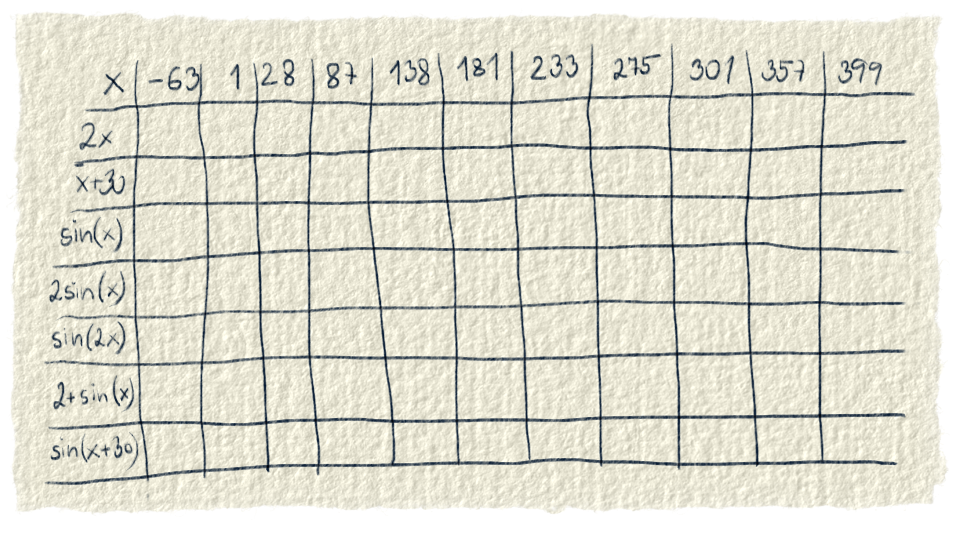 x -63 1 28 87 138 181 233 275 301 357 399
2x
x+30
sin(x)
2sin(x)
sin(2x)
2+sin(x)
sin(x+30)